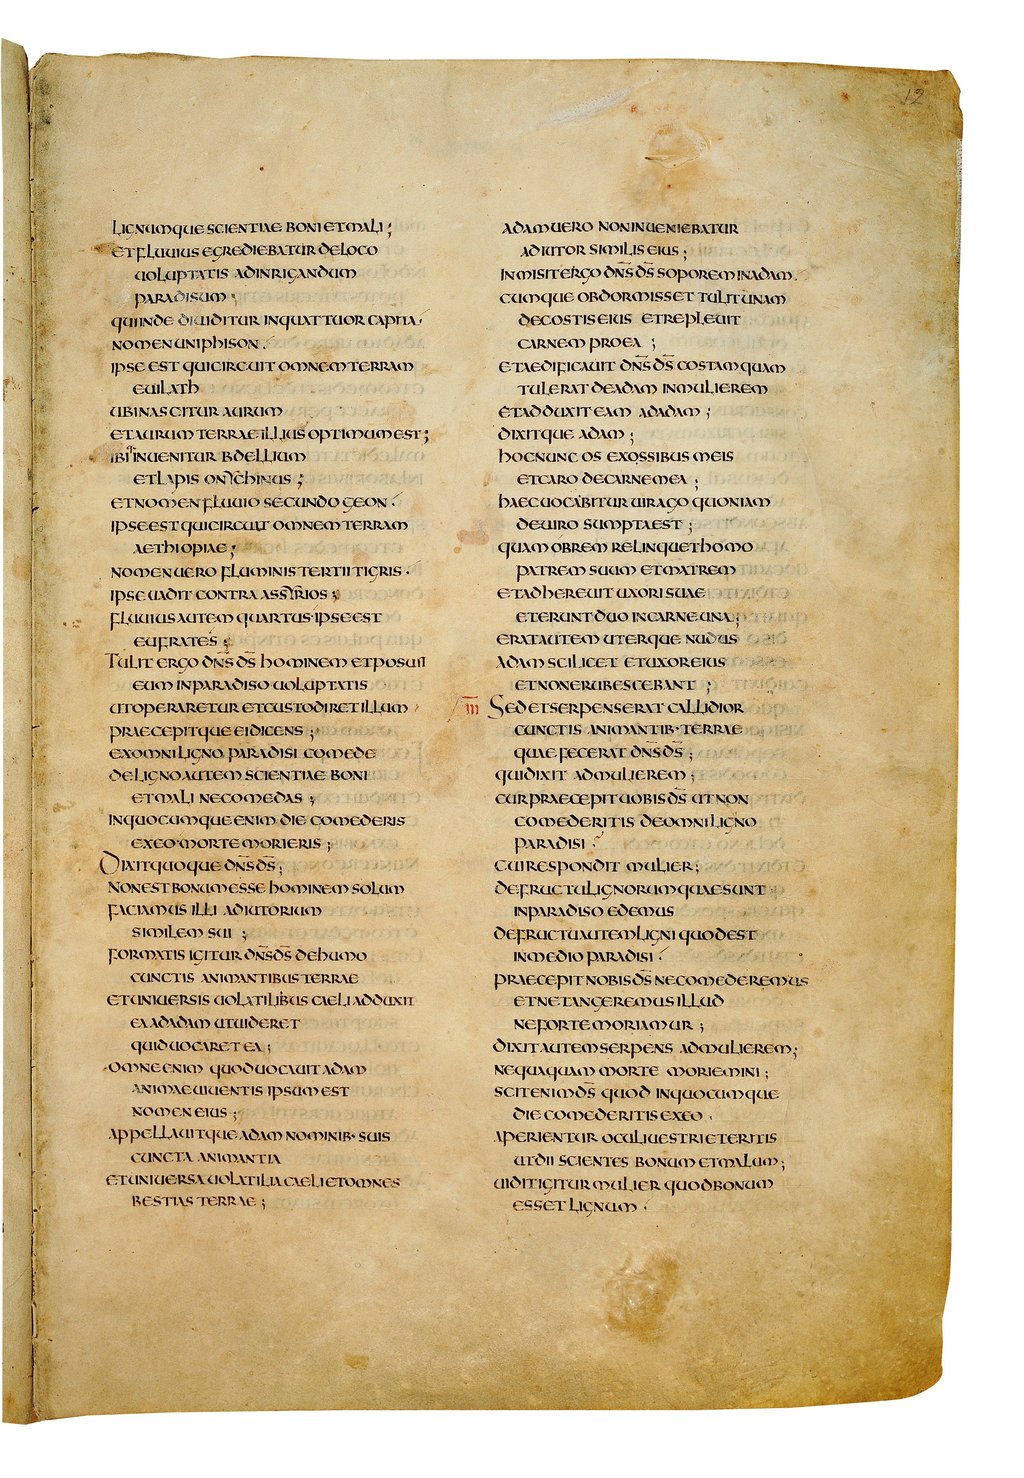 12
LIGNUMQUE SCIENTIAE BONI ET MALI ;
ET FLUUIUS EGREDIEBATUR DE LOCO
UOLUPTATIS AD INRIGANDUM
PARADISUM ;
QUI INDE DIUIDITUR IN QUATTUOR CAPITA ·
NOMEN UNI PHISON ·
IPSE EST QUI CIRCUIT OMNEM TERRAM
EUILATH
UBI NASCITUR AURUM
ET AURUM TERRAE ILLIUS OPTIMUM EST ;
IBI INUENITUR BDELLIUM
ET LAPIS ONYCHINUS ;
ET NOMEN FLUUIO SECUNDO GEON ·
IPSE EST QUI CIRCUIT OMNEM TERRAM
AETHIOPIAE ;
NOMEN UERO FLUMINIS TERTII TIGRIS ·
IPSE UADIT CONTRA ASSYRIOS ;
FLUUIUS AUTEM QUARTUS · IPSE EST
EUFRATES ;
TULIT ERGO DN̅S D̅S HOMINEM ET POSUIT
EUM IN PARADISO UOLUPTATIS
UT OPERARETUR ET CUSTODIRET ILLUM
PRAECEPITQUE EI DICENS ;
EX OMNI LIGNO PARADISI COMEDE
DE LIGNO AUTEM SCIENTIAE BONI
ET MALI NE COMEDAS ;
IN QUOCUMQUE ENIM DIE COMEDERIS
EX EO · MORTE MORIERIS ;
DIXIT QUOQUE DN̅S D̅S ;
NON EST BONUM ESSE HOMINEM SOLUM
FACIAMUS ILLI ADIUTORIUM
SIMILEM SUI ;
FORMATIS IGITUR DN̅S D̅S DE HUMO
CUNCTIS ANIMANTIBUS TERRAE
ET UNIUERSIS UOLATILIBUS CAELI ADDUXIT
EA AD ADAM UT UIDERET
QUID UOCARET EA ;
OMNE ENIM QUOD UOCAUIT ADAM
ANIMAE UIUENTIS IPSUM EST
NOMEN EIUS ;
APPELLAUITQUE ADAM NOMINIB· SUIS
CUNCTA ANIMANTIA
ET UNIUERSA UOLATILIA CAELI ET OMNES
BESTIAS TERRAE ;
ADAM UERO NON INUENIEBATUR
ADIUTOR SIMILIS EIUS ;
INMISIT ERGO DN̅S D̅S SOPOREM IN ADAM ·
CUMQUE OBDORMISSET TULIT UNAM
DE COSTIS EIUS ET REPLEUIT
CARNEM PRO EA ;
ET AEDIFICAUIT DN̅S D̅S COSTAM QUAM
TULERAT DE ADAM IN MULIEREM
ET ADDUXIT EAM AD ADAM ;
DIXITQUE ADAM ;
HOC NUNC OS EX OSSIBUS MEIS
ET CARO DE CARNE MEA ;
HAEC UOCABITUR UIRAGO QUONIAM
DE UIRO SUMPTA EST ;
QUAM OBREM RELINQUET HOMO
PATREM SUUM ET MATREM
ET ADHEREUIT UXORI SUAE
ET ERUNT DUO IN CARNE UNA ;
ERAT AUTEM UTERQUE NUDUS
ADAM SCILICET ET UXOR EIUS
ET NON ERUBESCEBANT ;
III SED ET SERPENS ERAT CALLIDIOR
CUNCTIS ANIMANTIB· TERRAE
QUAE FECERAT DN̅S D̅S ;
QUI DIXIT AD MULIEREM ;
CUR PRAECEPIT UOBIS D̅S UT NON
COMEDERITIS DE OMNI LIGNO
PARADISI ·
CUI RESPONDIT MULIER ;
DE FRUCTU LIGNORUM QUAE SUNT
IN PARADISO EDEMUS
DE FRUCTU AUTEM LIGNI QUOD EST
IN MEDIO PARADISI ·
PRAECEPIT NOBIS D̅S NE COMEDEREMUS
ET NE TANGEREMUS ILLUD
NE FORTE MORIAMUR ;
DIXIT AUTEM SERPENS AD MULIEREM ;
NEQUAQUAM MORTE MORIEMINI ;
SCIT ENIM D̅S QUOD IN QUOCUMQUE
DIE COMEDERITIS EX EO ·
APERIENTUR OCULI UESTRI ET ERITIS
UT DII SCIENTES BONUM ET MALUM ;
UIDIT IGITUR MULIER QUOD BONUM
ESSET LIGNUM ·